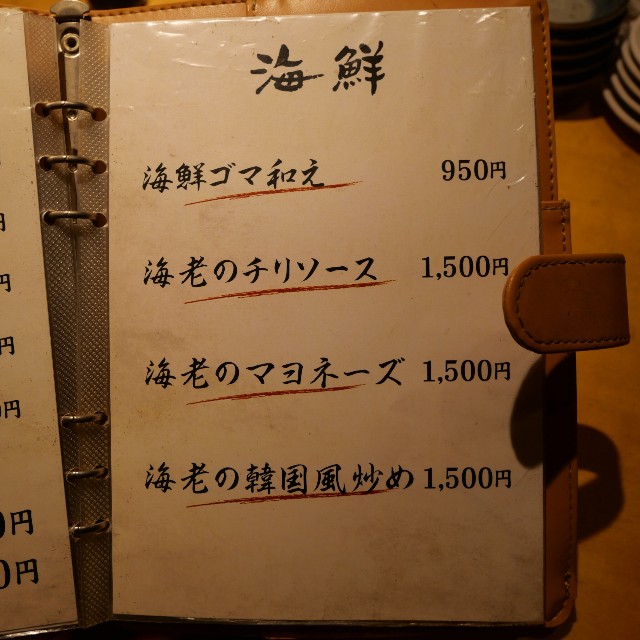 海鮮
海鮮ゴマ和え 950円
海老のチリソース 1,500円
海老のマヨネーズ 1,500円
海老の韓国風炒め 1,500円
円
円
円
0円
0円
0円